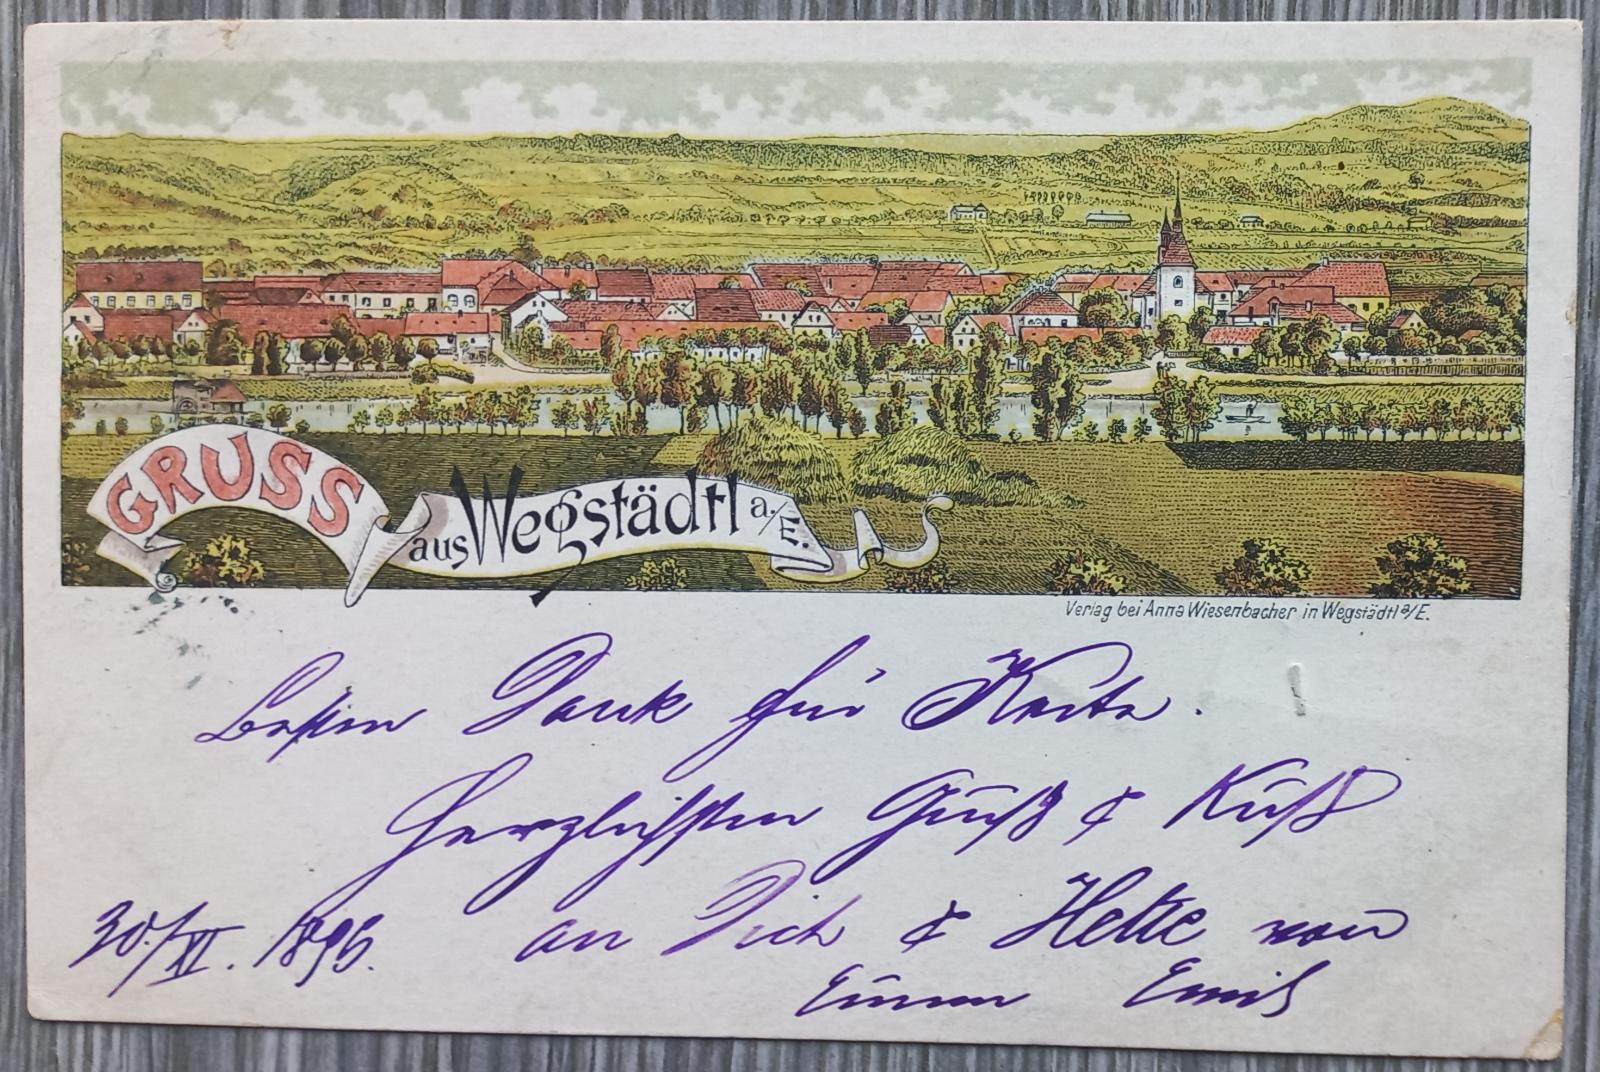 GRUSS
aus Wegstädtl a./E.
Verlag bei Anna Wiesenbacher in Wegstädtl a/E.
Besten Dank für Karte.
Herzlichsten Gruß & Kuß
an Dich & Helke von
30./XI. 1895. 
Emil